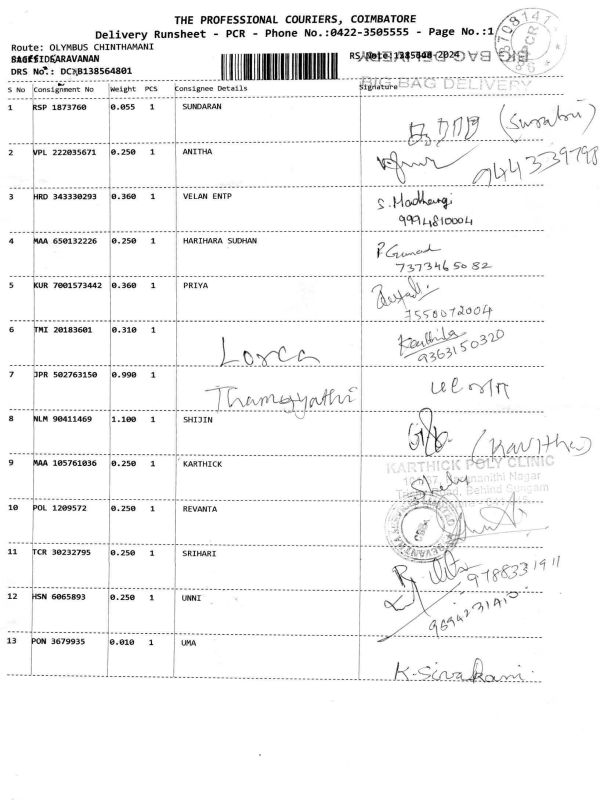 THE PROFESSIONAL COURIERS, COIMBATORE
Delivery Runsheet - PCR - Phone No.:0422-3505555 - Page No.:1
Route: OLYMBUS CHINTHAMANI
SARAVANAN
DRS No.: DC B138564801
BIG BAG DELIVERY
BIG BAG DELIVERY
PCR
S No Consignment No Weight PCS Consignee Details Signature
1 RSP 1873760 0.055 1 SUNDARAN
2 VPL 222035671 0.250 1 ANITHA 9443339798
3 HRD 343330293 0.360 1 VELAN ENTP S. Madhangi 9994810004
4 MAA 650132226 0.250 1 HARIHARA SUDHAN 7373465082
5 KUR 7001573442 0.360 1 PRIYA 7550072004
6 TMI 20183601 0.310 1 Karthika 9363150320
7 JPR 502763150 0.990 1
8 NLM 90411469 1.100 1 SHIJIN (Kavitha)
9 MAA 105761036 0.250 1 KARTHICK
KARTHICK POLY CLINIC
Nagar
Behind Sungam
10 POL 1209572 0.250 1 REVANTA
11 TCR 30232795 0.250 1 SRIHARI 9788331911
12 HSN 6065893 0.250 1 UNNI
13 PON 3679935 0.010 1 UMA K. Sivakani